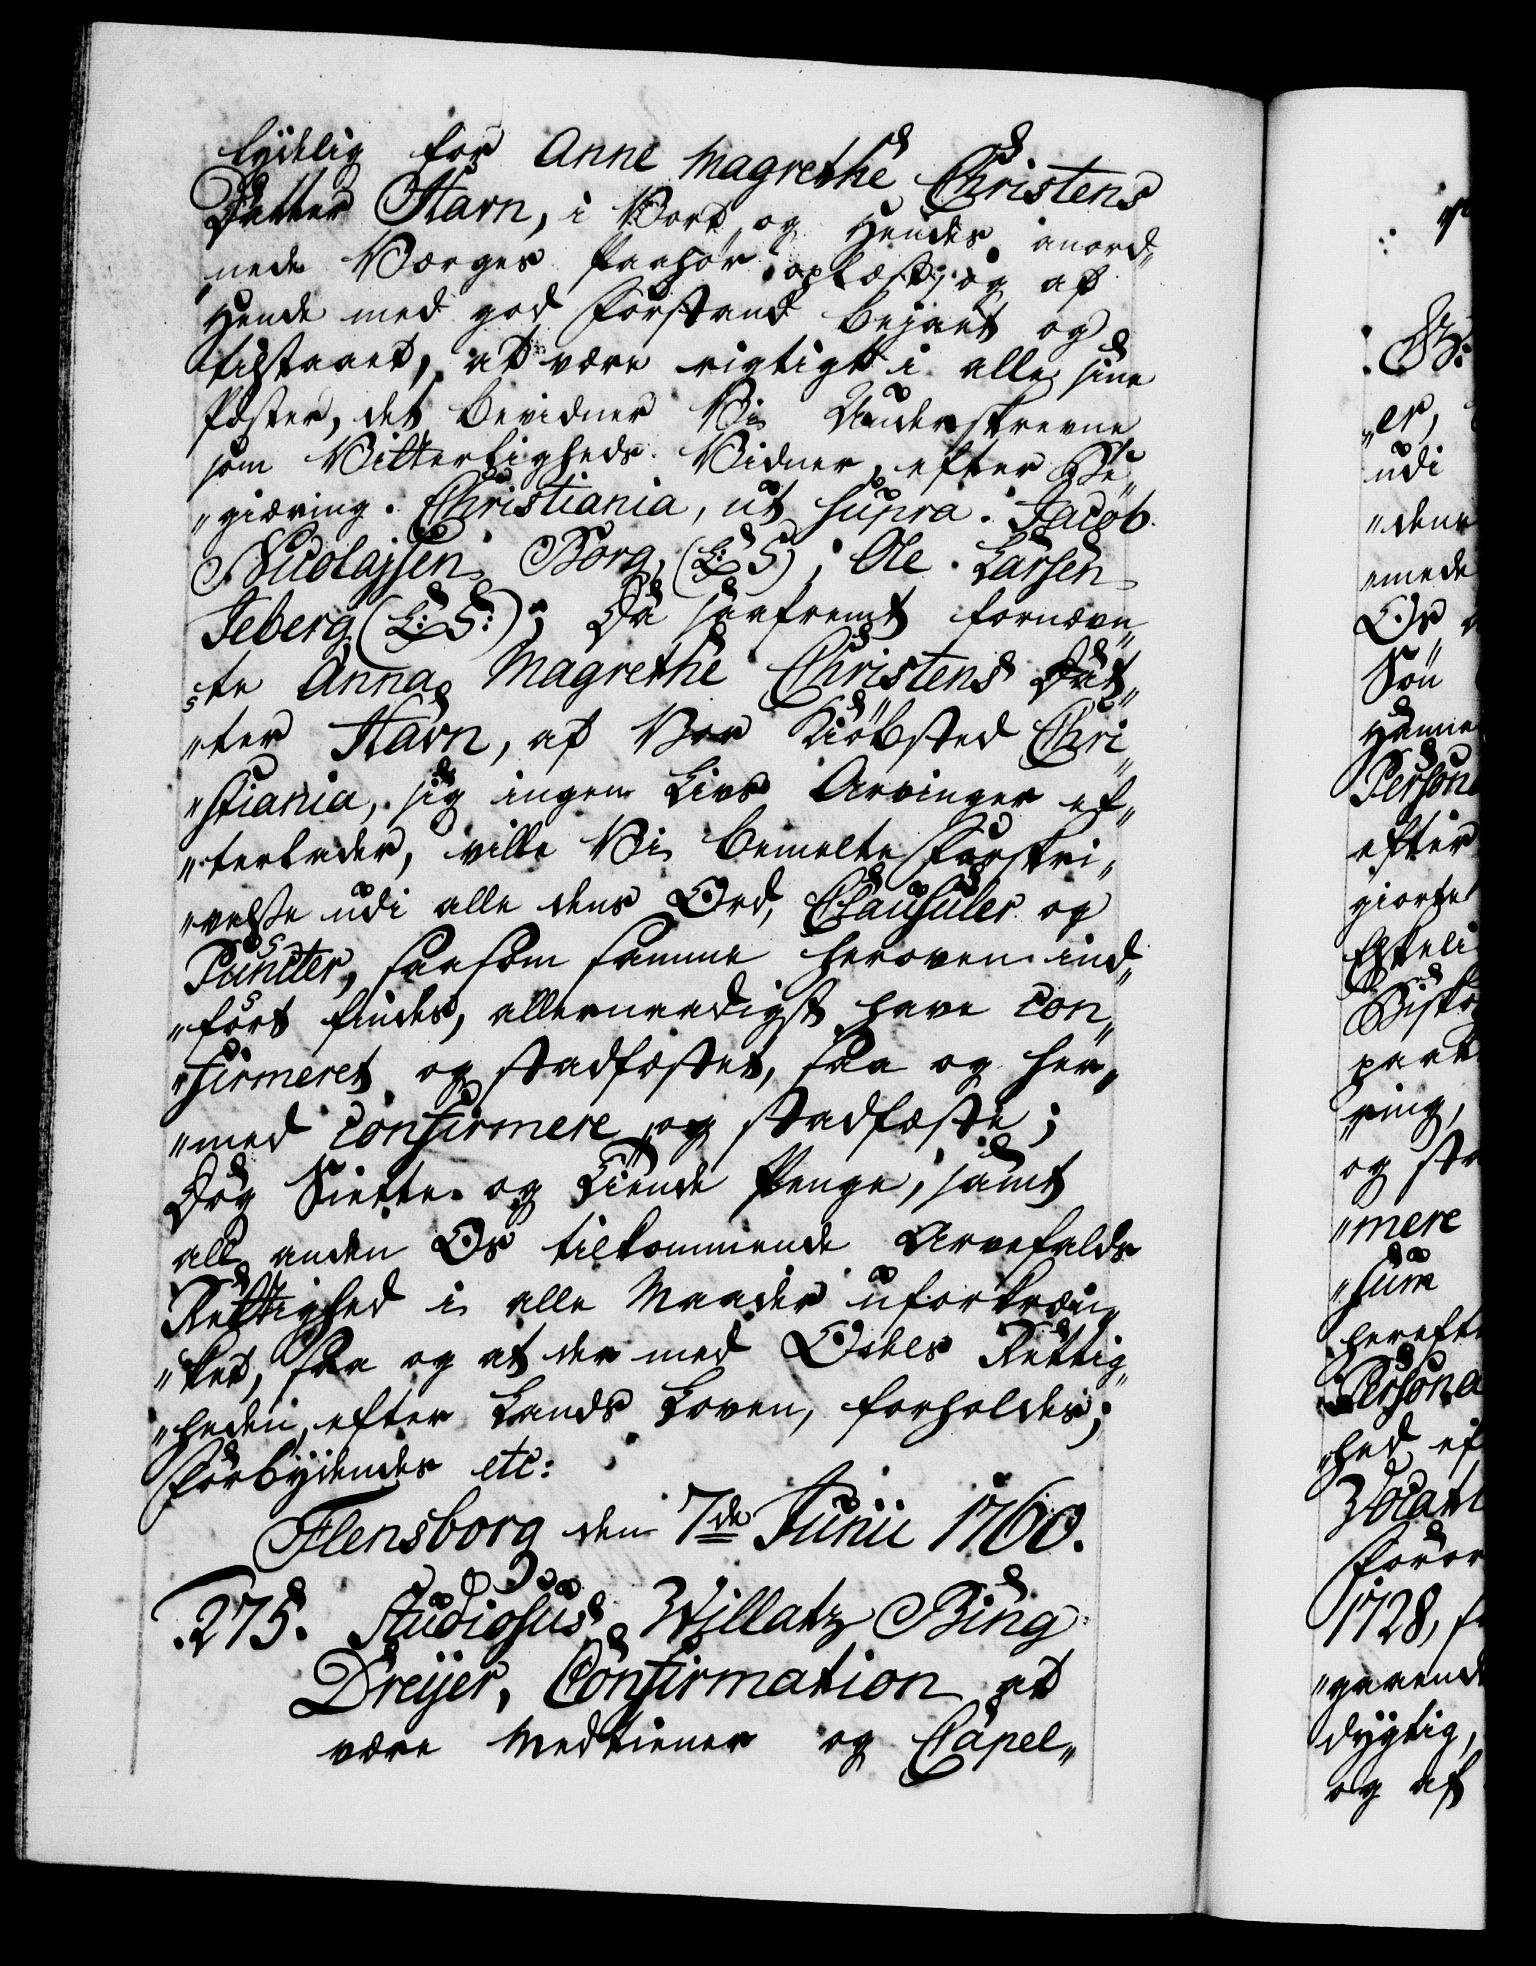 lydelig for Anne Magrethe Christens
Datter Stavn, i Vort og Hendes anord„
„nede Værges Paahør oplæst, og af
Hende med god Forstand bejaet og
tilstaaet, at være rigtigt i alle sine
Poster, det bevidner Vi Underskrevne
som Vitterligheds Vidner, efter Be„
„giæring. Christiania, ut supra. Jacob
Nicolajsen Borg, (L: S), Ole Larsen
Teberg (L: S:); Da saafremt fornævn„
„te Anna Magrethe Christens Dat„
„ter Stavn, af Vor Kiöbsted Chri„
„stiania, sig ingen Livs Arvinger ef„
„terlader, ville Vi bemelte Forskri„
„velse udi alle dens Ord, Clausuler og
Puncter, saasom samme heroven ind„
„ført findes, allernaadigst have con„
„firmeret og stadfæstet, saa og her„
„med confirmere og stadfæste;
Dog Siette og Tiende Penge, samt
all anden Os tilkommende Arvefalds
Rettighed i alle Maader uforkræn„
„ket, saa og at der med Odels Rettig„
„heden, efter Lands Loven, forholdes;
Forbydendes etc:
Flensborg den 7de Junii 1760.
275. Studiosus Willatz Bing
Dreÿer, Confirmation at
være Medtiener og Capel„
er,
udi
„dene
„mede
Os
Sön
Hanne
Person
efter
giorte
Biskop
ring,
og
„mere
„sum
herefte
Persona
„hed ef
Vocati
1728,
„gaaende
dygtig,
og af